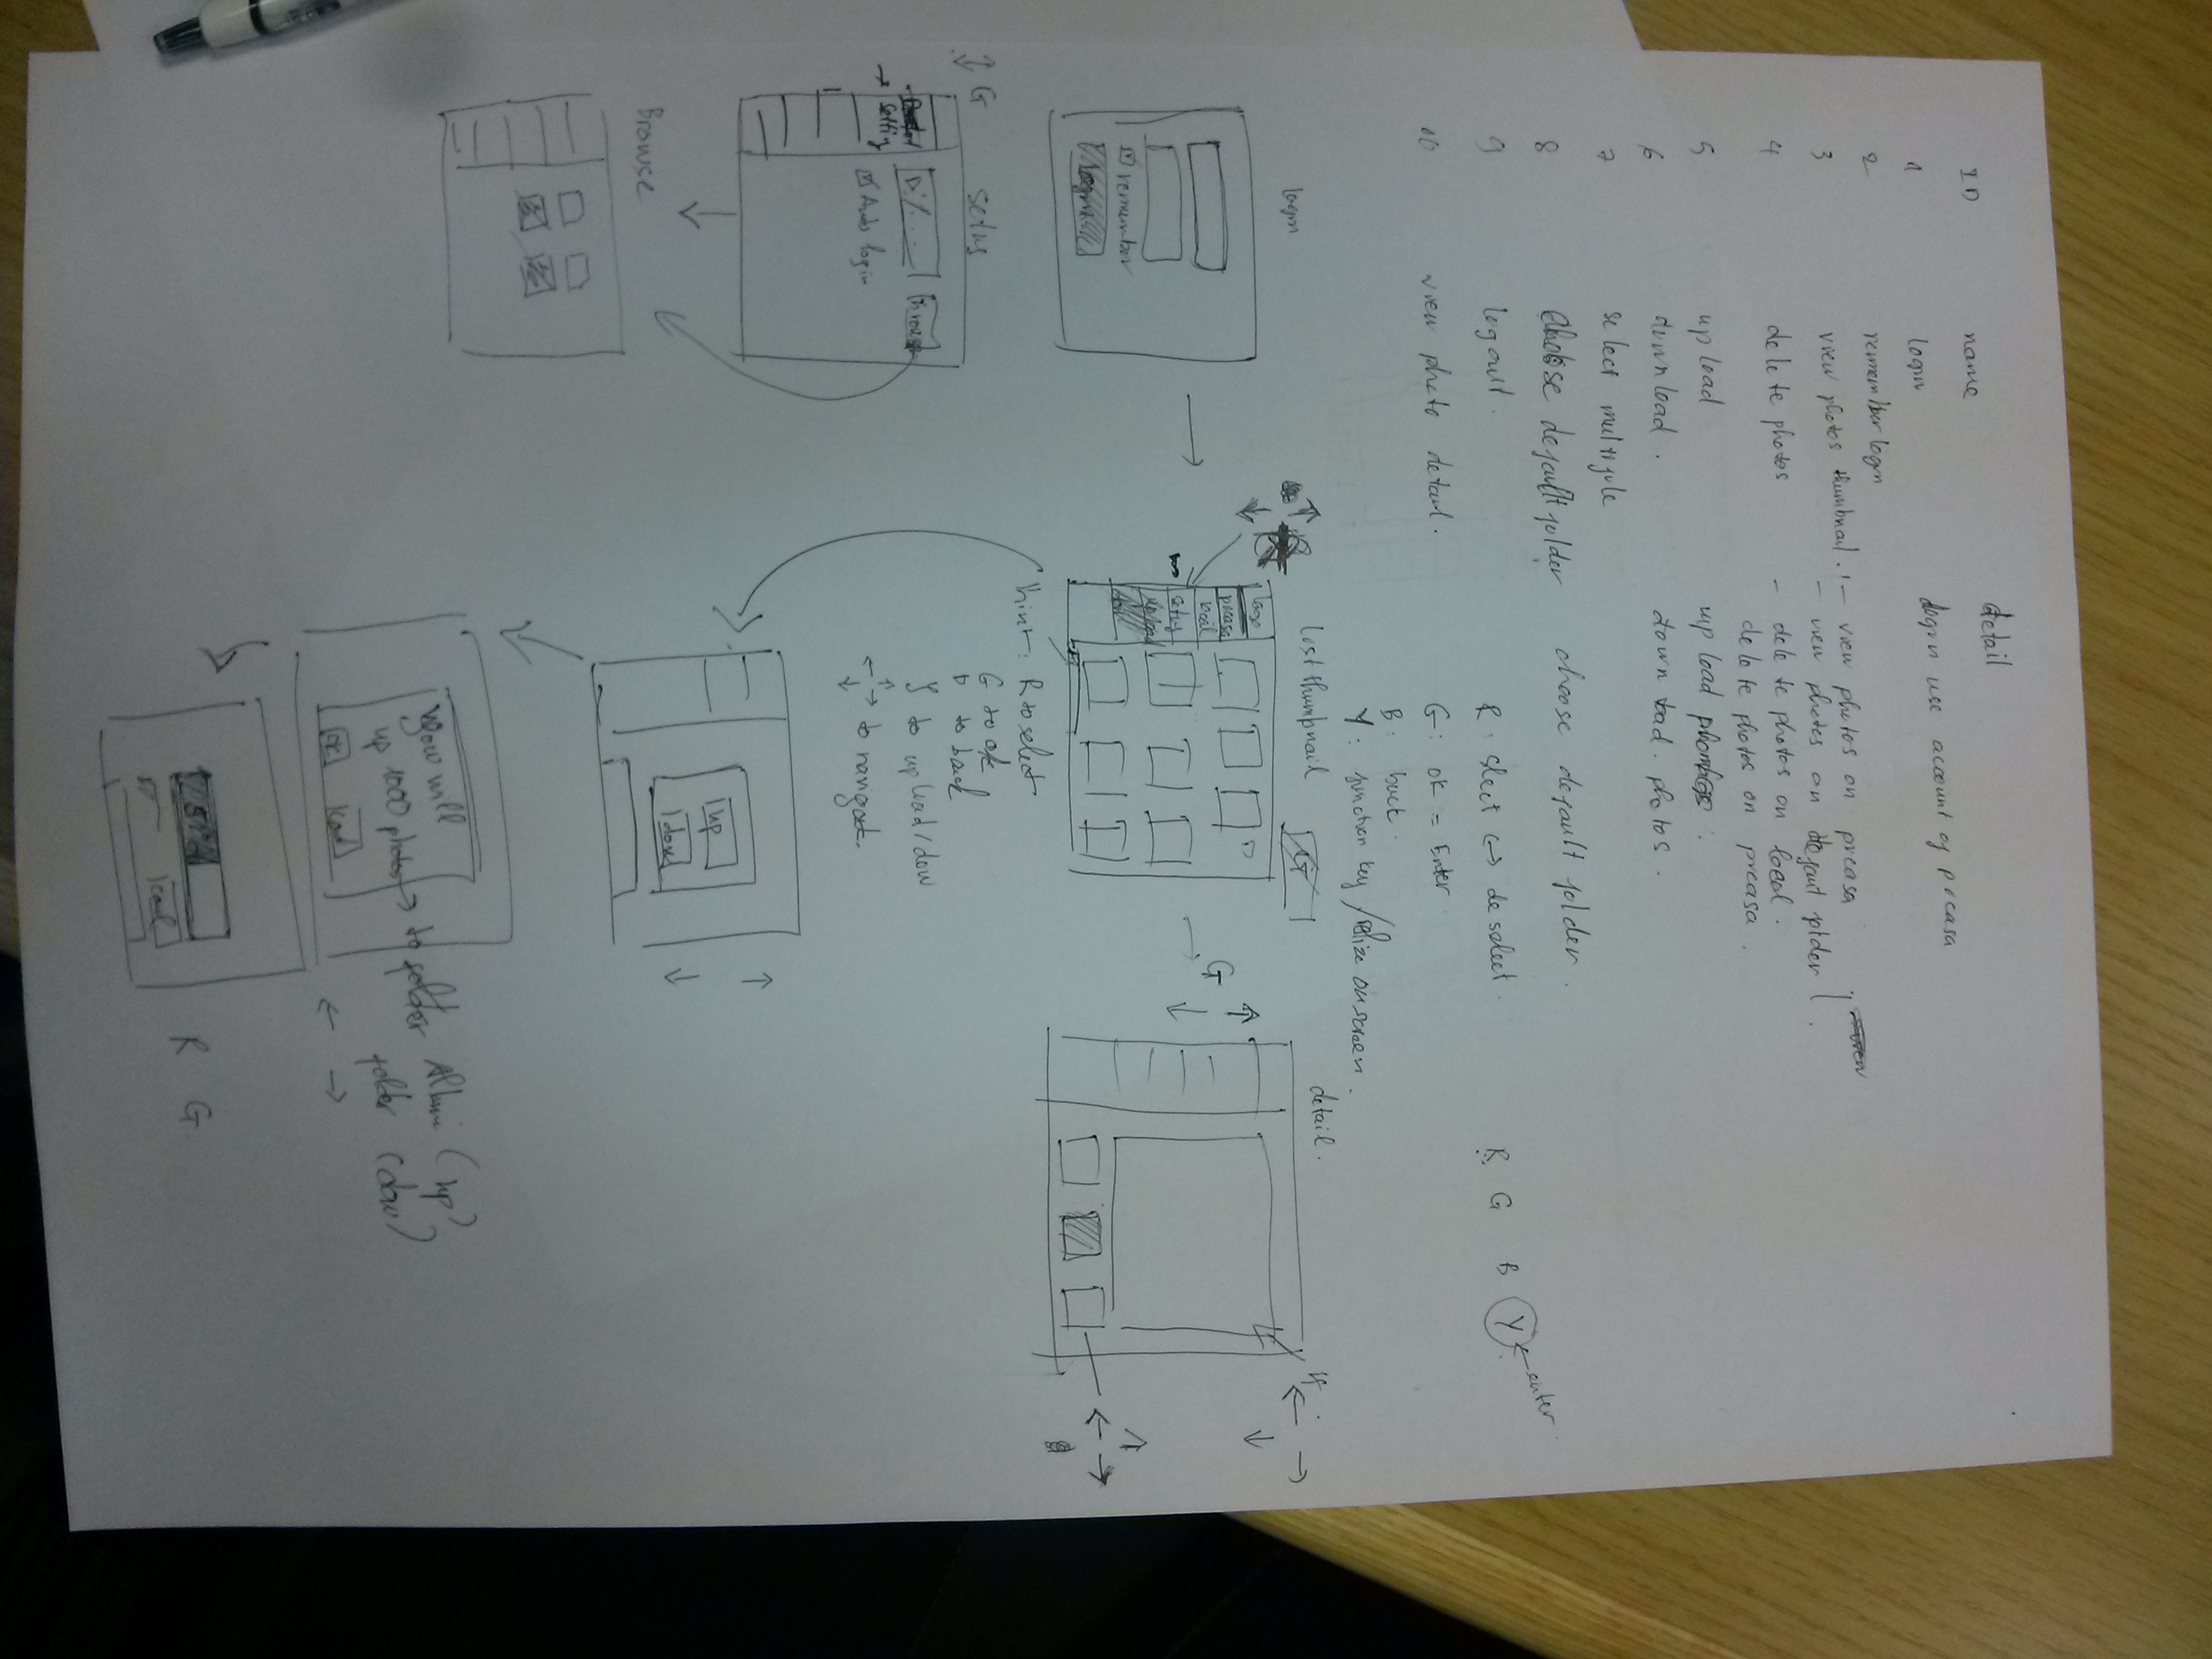 ID name detail
1 login login use account of picasa
2 remember login
3 view photos thumbnail : - view photos on picasa
- view photos on defaut folder
4 delete photos - delete photos on local.
delete photos on picasa.
5 upload upload photos.
6 download. download. photos.
7 select multiple
8 choose default folder choose default folder.
9 logout.
10 view photo detail.
R: slect <-> deselect.
G: ok = Enter
B: back.
Y: function key / on screen.
R G B Y ← enter
login
remember
login
list thumbnail
G
logo
picasa
local
seting
upload
detail.
G
hint: R to select
G to ok
B to back
Y to upload/dow
to navigate.
G
setting
D:/...
Browse
Setting
Auto login
Browse
up
dow
you will
up 1000 photos → to folder Album (up)
folder (dow)
ok
R G